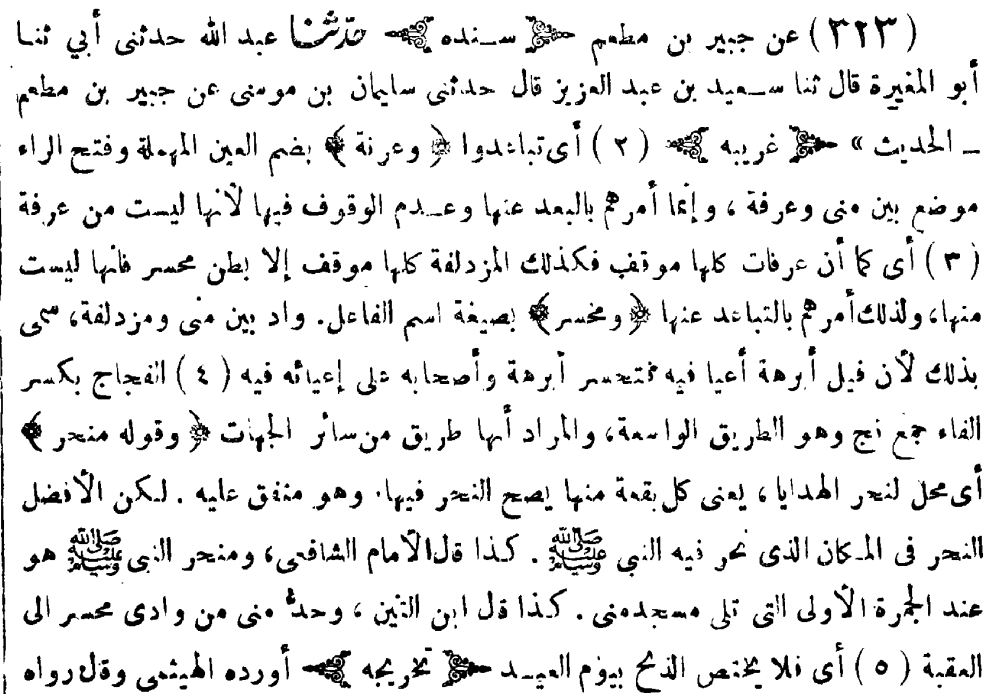 (٣٢٣) عن جبير بن مطعم ﴿ سنده ﴾ حدثنا عبد الله حدثنى أبي ثنا
أبو المغيرة قال ثنا سعيد بن عبد العزيز قال حدثنى سليمان بن موسى عن جبير بن مطعم
ــ الحديث » ﴿ غريبه ﴾ (٢) أى تباعدوا ﴿ وعرنة ﴾ بضم العين المهملة وفتح الراء
موضع بين منى وعرفة ، وإنما أمرهم بالبعد عنها وعدم الوقوف فيها لأنها ليست من عرفة
(٣) أى كما أن عرفات كلها موقف فكذلك المزدلفة كلها موقف إلا بطن محسر فانها ليست
منها، ولذلك أمرهم بالتباعد عنها ﴿ ومحسر ﴾ بصيغة اسم الفاعل. واد بين منى ومزدلفة، سمى
بذلك لأن فيل أبرهة أعيا فيه فتحسر أبرهة وأصحابه على إعيائه فيه (٤) الفجاج بكسر
الفاء جمع فج وهو الطريق الواسعة، والمراد أنها طريق من سائر الجهات ﴿ وقوله منحر ﴾
أى محل لنحر الهدايا ، يعنى كل بقعة منها يصح النحر فيها. وهو متفق عليه . لكن الأفضل
النحر فى المكان الذى نحر فيه النبي ﷺ . كذا قال الأمام الشافعى، ومنحر النبى ﷺ هو
عند الجمرة الأولى التى تلى مسجد منى . كذا قال ابن التين ، وحدّ منى من وادى محسر الى
العقبة (٥) أى فلا يختص الذبح بيوم العيد ﴿ تخريجه ﴾ أورده الهيثمى وقال رواه